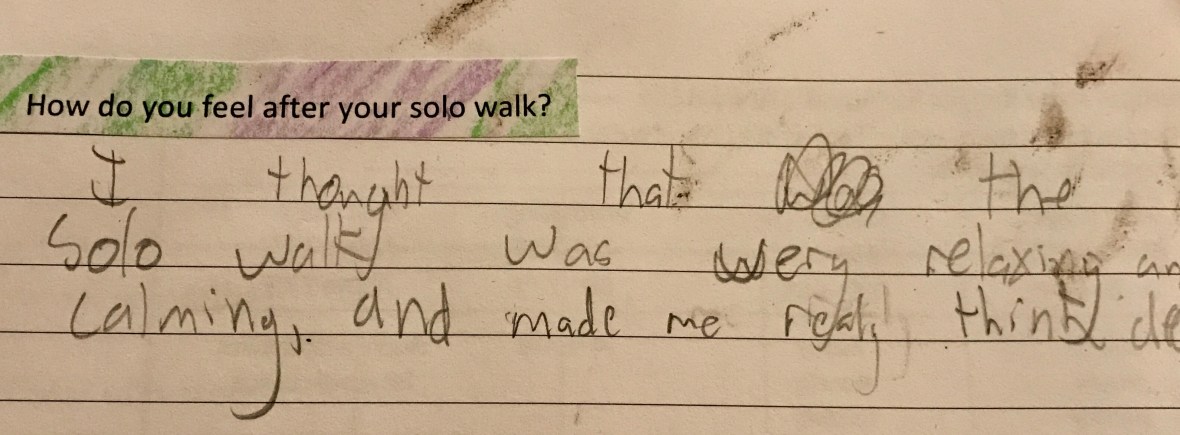 How do you feel after your solo walk?
I thought that the
Solo walk was very relaxing an
calming, and made me realy think de